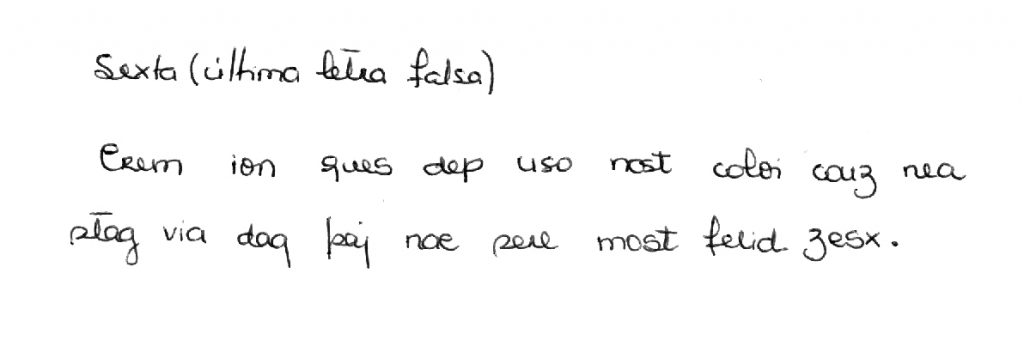 Sexta (última letra falsa)
Crem ion ques dep uso nost coloi couz nea
stag via daq paj rae sere most felid zesx.